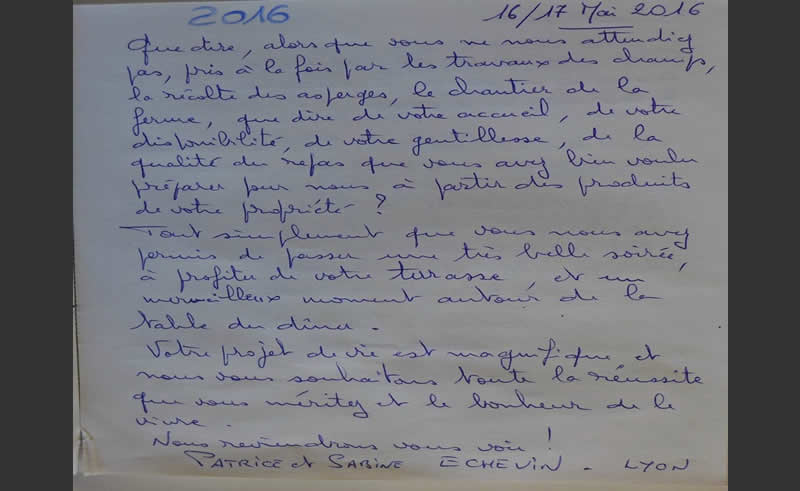 2016
16/17 Mai 2016
Que dire, alors que vous ne nous attendiez
pas, pris à la fois par les travaux des champs,
la récolte des asperges, le chantier de la
ferme, que dire de votre accueil, de votre
disponibilité, de votre gentillesse, de la
qualité du repas que vous avez bien voulu
préparer pour nous à partir des produits
de votre propriété ?
Tout simplement que vous nous avez
permis de passer une très belle soirée,
à profiter de votre terrasse, et un
merveilleux moment autour de la
table du dîner.
Votre projet de vie est magnifique et
nous vous souhaitons toute la réussite
que vous méritez et le bonheur de le
vivre.
Nous reviendrons vous voir !
PATRICE et SABINE ECHEVIN - LYON